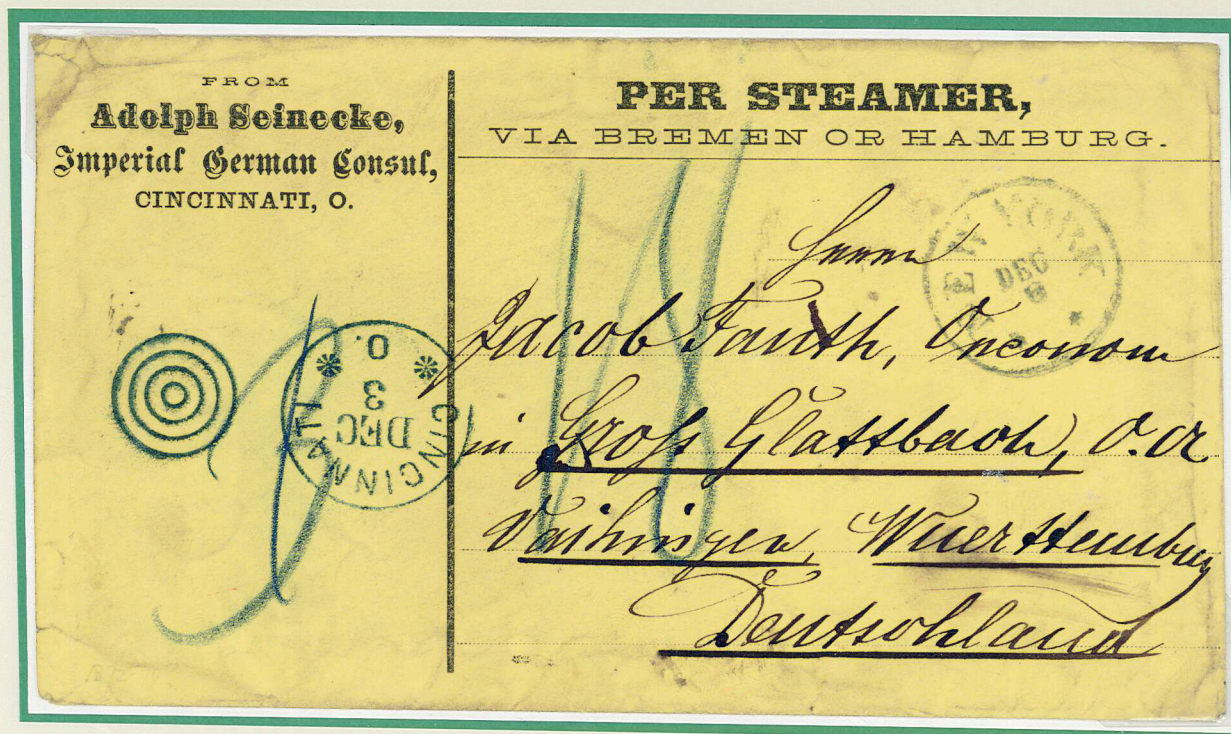 FROM
Adolph Seinecke,
Imperial German Consul,
CINCINNATI, O.
PER STEAMER,
VIA BREMEN OR HAMBURG.
NEW YORK
DEC
CINCINNATI O.
DEC
3
Herrn
Jacob Fauth, Oeconom
in Gross Glattbach, O. A
Vaihingen, Wuerttemburg
Deutschland